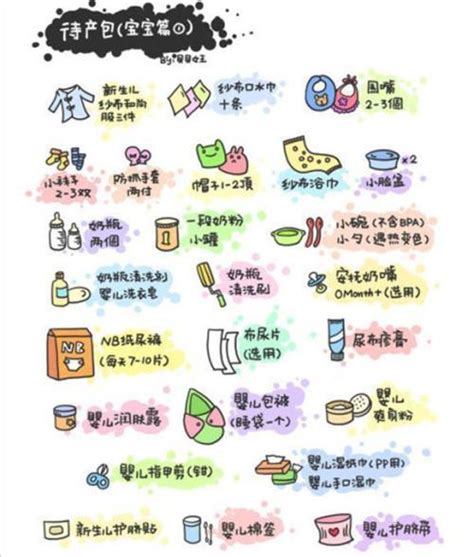 待产包(宝宝篇①)
By:贝贝女王
新生儿
纱布和尚
服三件
纱布口水巾
十条
围嘴
2-3個
小袜子
2-3双
防抓手套
两付
帽子1-2顶
纱布浴巾
×2
小脸盆
奶瓶
两個
一段奶粉
1
小罐
小碗(不含BPA)
小勺(遇热变色)
奶瓶清洗剂
婴儿洗衣皂
奶瓶
清洗刷
安抚奶嘴
0Month+(选用)
NB
NB纸尿裤
(每天7-10片)
布尿片
(选用)
尿布疹膏
婴儿润肤露
婴儿包裤
(睡袋一个)
婴儿
爽身粉
婴儿指甲剪(钳)
婴儿湿纸巾(PP用)
婴儿手口湿巾
新生儿护脐贴
婴儿棉签
婴儿护脐带